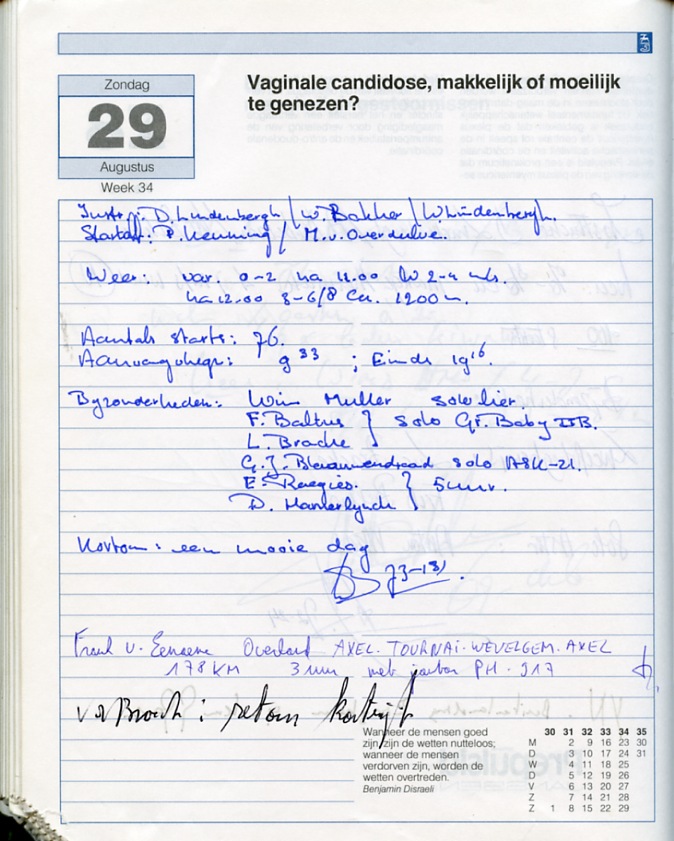 Zondag
29
Augustus
Week 34
Vaginale candidose, makkelijk of moeilijk
te genezen?
Instr.: D. Lindenbergh / W. Bakker / W. Lindenbergh.
Startoff: P. Henning / M. v. Overdulve.
Weer: var. 0-2 na 11.00 W 2-4 m/s.
na 12.00 3-6/8 Cu. 1200 m.
Aantal starts: 76.
Aanvang vliegn: 9 33 ; Einde 19 16.
Byzonderheden: Wim Muller solo lier.
F. Baltus } solo Gr. Baby IIB.
L. Brache
G.J. Blauwendraad solo ASK-21.
E. Raegies. } 5 uur.
D. Manterlynck
Kortom: een mooie dag
Frank v. Eenaeme Overland AXEL. TOURNAI. WEVELGEM. AXEL
178 KM 3 uur met PH. 917
v d Broek: retour kortrijk
Wanneer de mensen goed
zijn zijn de wetten nutteloos;
wanneer de mensen
verdorven zijn, worden de
wetten overtreden.
Benjamin Disraeli
30 31 32 33 34 35
M 2 9 16 23 30
D 3 10 17 24 31
W 4 11 18 25
D 5 12 19 26
V 6 13 20 27
Z 7 14 21 28
Z 1 8 15 22 29